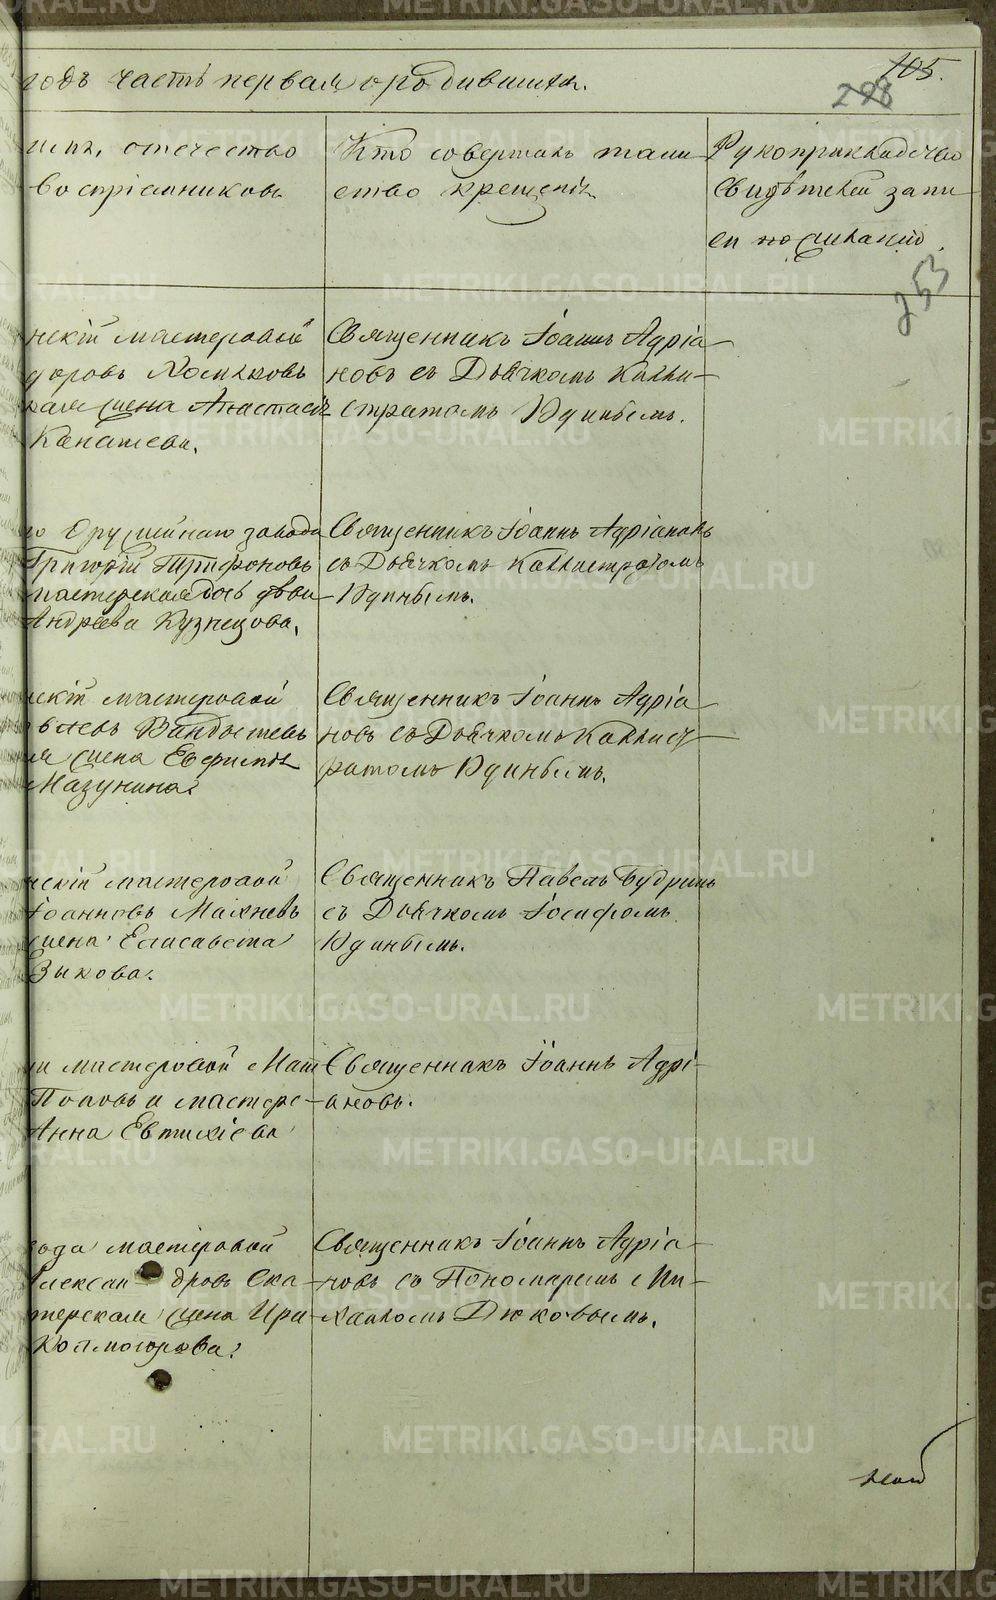 105.
298
годъ часть первая о родившихся.
отечество
воспріемниковъ
Кто совершалъ таин-
ство крещенія
Рукоприкладство
свидѣтелей запи-
си по желанію.
253
мастеровой
Хомяковъ
жена Анастасія
Канашева.
Священникъ Іоаннъ Адріа-
новъ съ Дьячкомъ Калли-
стратомъ Удинцевымъ.
Оружейнаго завода
Григорій Трифоновъ
мастерская дочь дѣви-
Андреева Кузнецова.
Священникъ Іоаннъ Адріановъ
съ Дьячкомъ Каллистратомъ
мастеровой
жена Евфимія
Мазунина.
Священникъ Іоаннъ Адріа-
новъ съ Дьячкомъ Каллист-
ратомъ
мастеровой
Іоанновъ Махневъ
жена Елисавета
Зыкова.
Священникъ Павелъ Будринъ
съ Дьячкомъ Іосифомъ
мастеровой Мат-
Поповъ и мастерс-
Анна Евтихіева
Священникъ Іоаннъ Адрі-
ановъ.
мастеровой
Александровъ Ска-
терская жена Ири-
Колмогорова.
Священникъ Іоаннъ Адріа-
новъ съ Пономаремъ Ми-
хаиломъ Дюковымъ.
METRIKI.GASO-URAL.RU